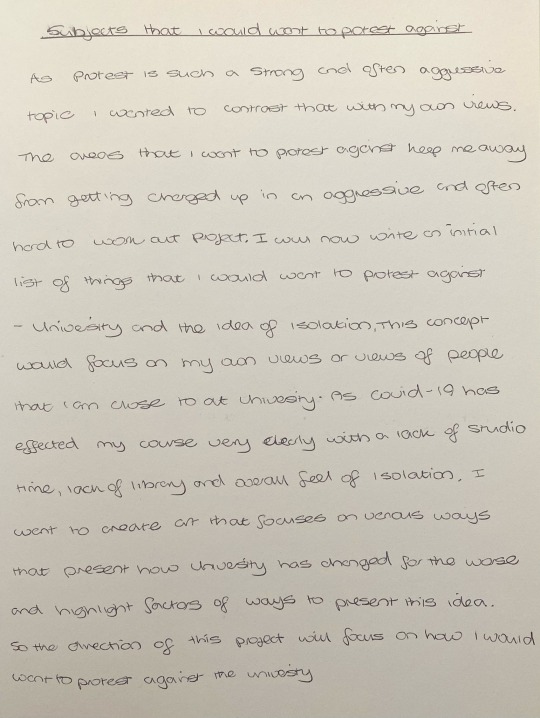 Subjects that I would want to protest against
As Protest is such a strong and often aggressive
topic I wanted to contrast that with my own views.
The areas that I want to protest against keep me away
from getting charged up in an aggressive and often
hard to work out project. I will now write an initial
list of things that I would want to protest against
- University and the idea of isolation, This concept
would focus on my own views or views of people
that I am close to at University. As covid-19 has
effected my course very clearly with a lack of studio
time, lack of library and overall feel of isolation, I
want to create art that focuses on various ways
that present how University has changed for the worse
and highlight factors of ways to present this idea.
So the direction of this project will focus on how I would
want to protest against the university